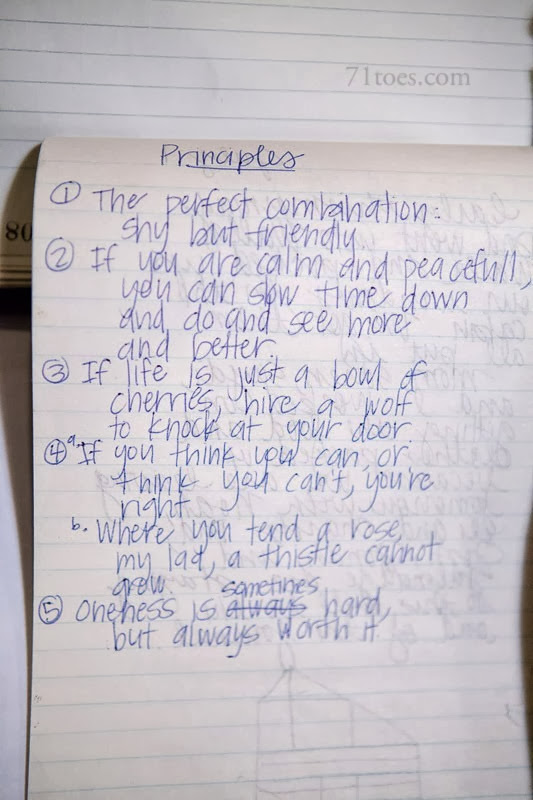 71toes.com
Principles
① The perfect combination:
shy but friendly
② If you are calm and peacefull,
you can slow time down
and do and see more
and better.
③ If life is just a bowl of
cherries, hire a wolf
to knock at your door.
④a. If you think you can, or
think you can't, you're
right
b. Where you tend a rose,
my lad, a thistle cannot
grow.
sometimes
⑤ Oneness is always hard,
but always worth it.
80